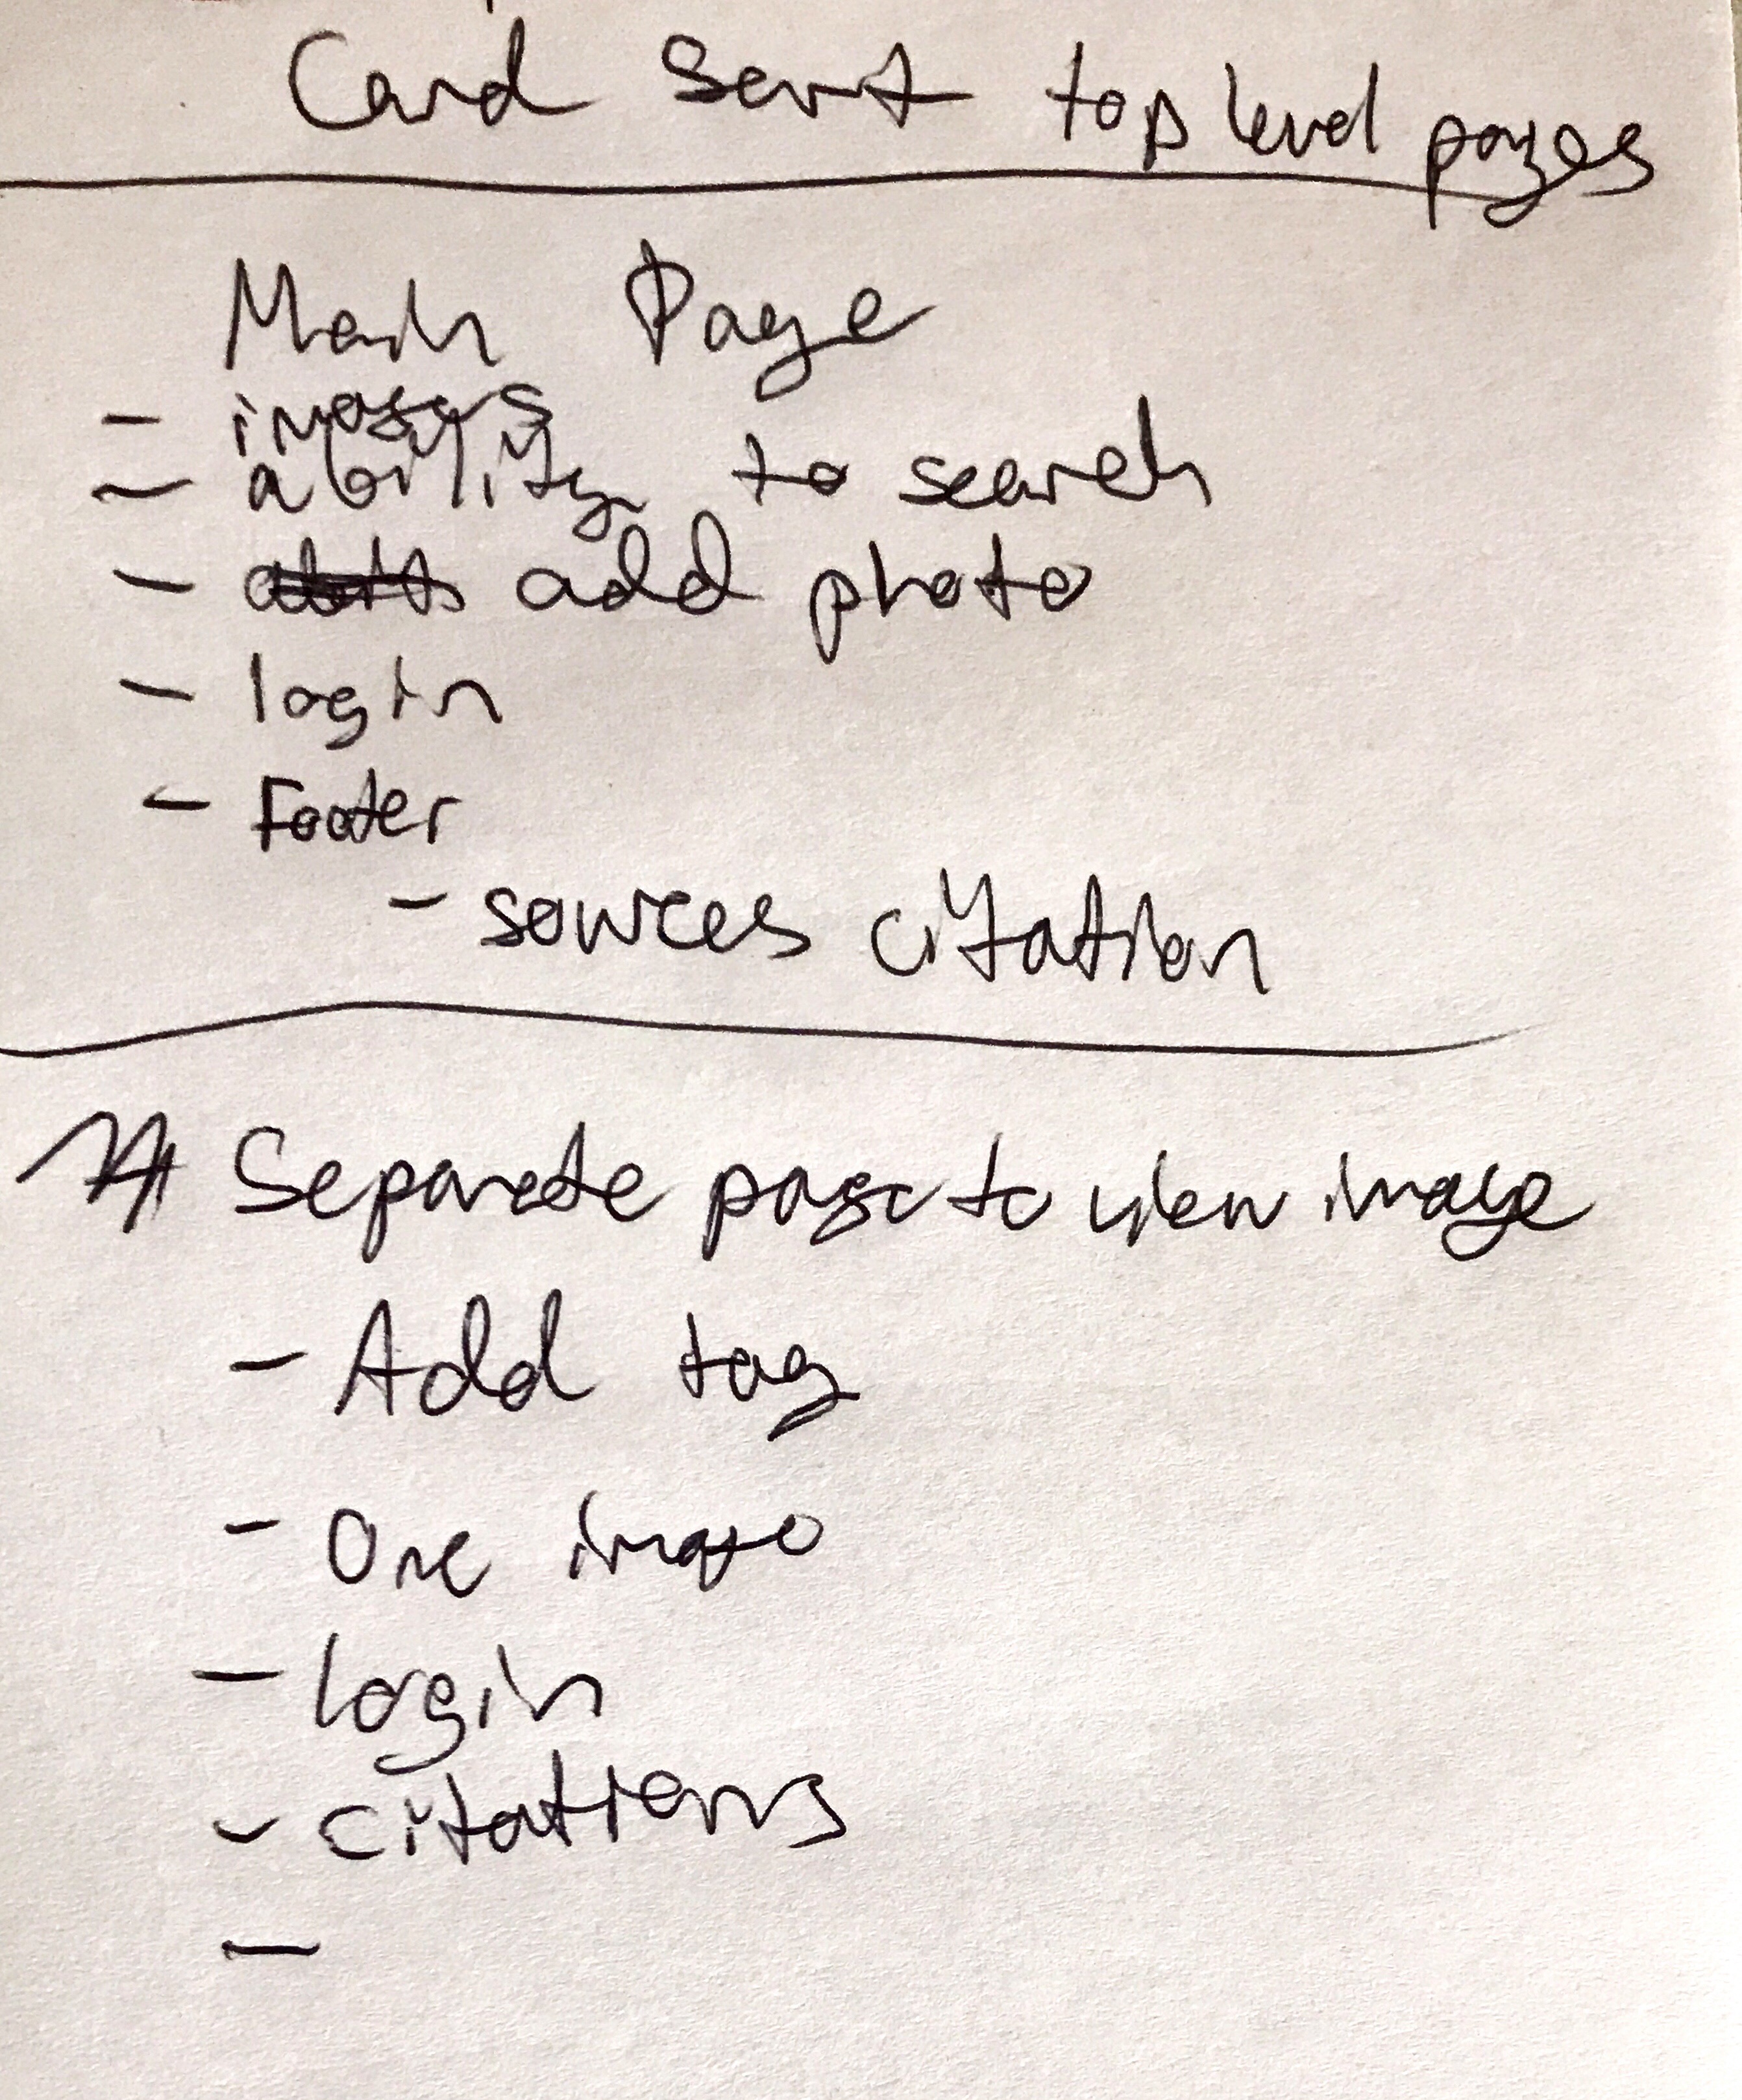 Card Sort top level pages
Main Page
- images
- ability to search
- add photo
- login
- Footer
- sources citation
Separate page to view image
- Add tag
- One image
- login
- citations
-